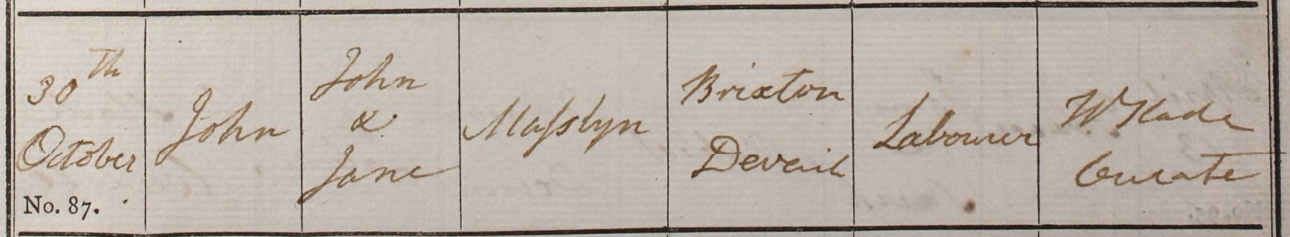 30th
October
No. 87.
John
John
&
Jane
Masslyn
Brixton
Deveril
Labourer
W Slade
Curate